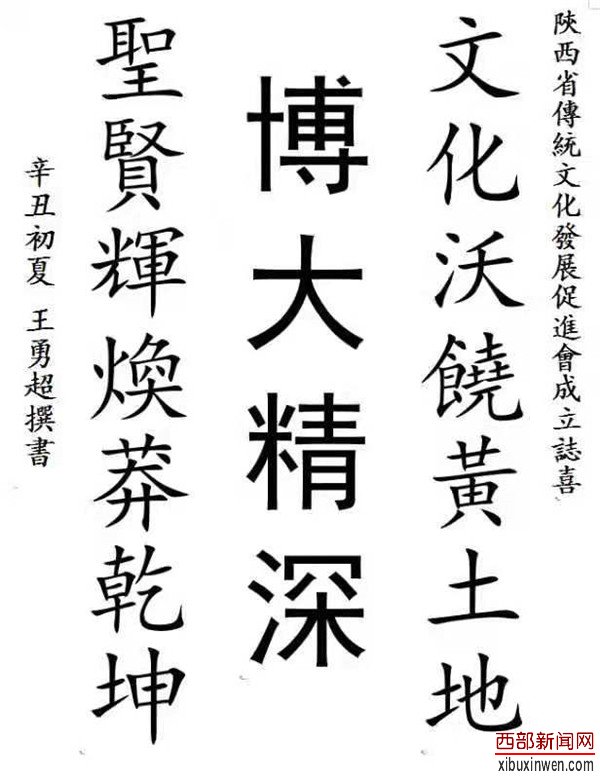 陝西省傳統文化發展促進會成立誌喜
文化沃饒黃土地
博大精深
聖賢輝煥莽乾坤
辛丑初夏 王勇超撰書
西部新闻网
xibuxinwen.com